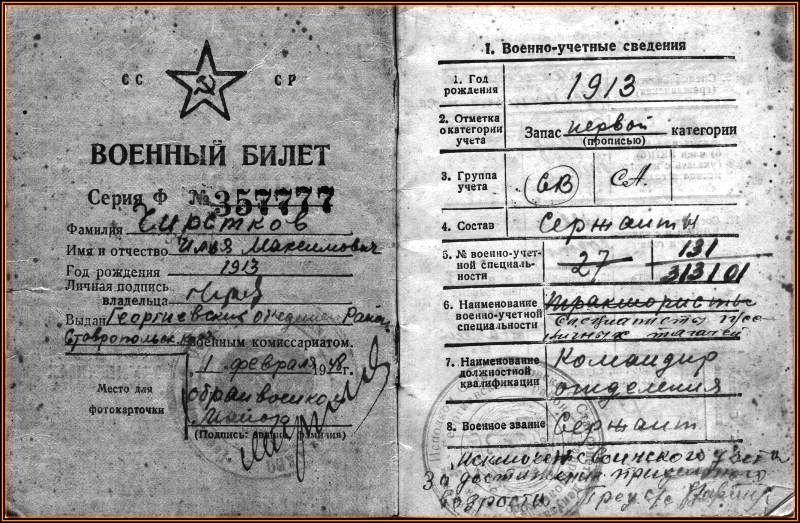 СС СР
ВОЕННЫЙ БИЛЕТ
Серия Ф № 357777
Фамилия Чирятков
Имя и отчество Илья Максимович
Год рождения 1913
Личная подпись
владельца
Выдан Георгиевским Райо
Ставропольск. военным комиссариатом.
„1" февраля 1948 г.
Место для
фотокарточки
Майор
(Подпись: звание, фамилия)
I. Военно-учетные сведения
1. Год
рождения
1913
2. Отметка
о категории
учета
Запас первой категории
(прописью)
3. Группа
учета
СА
4. Состав
Сержанты
5. № военно-учет-
ной специаль-
ности
27
131
313101
6. Наименование
военно-учетной
специальности
Трактористы
Специалисты
тягачей
7. Наименование
должностной
квалификации
Командир
отделения
8. Военное звание
Сержант
Исключен с воинского учета
За достижением предельного
возраста